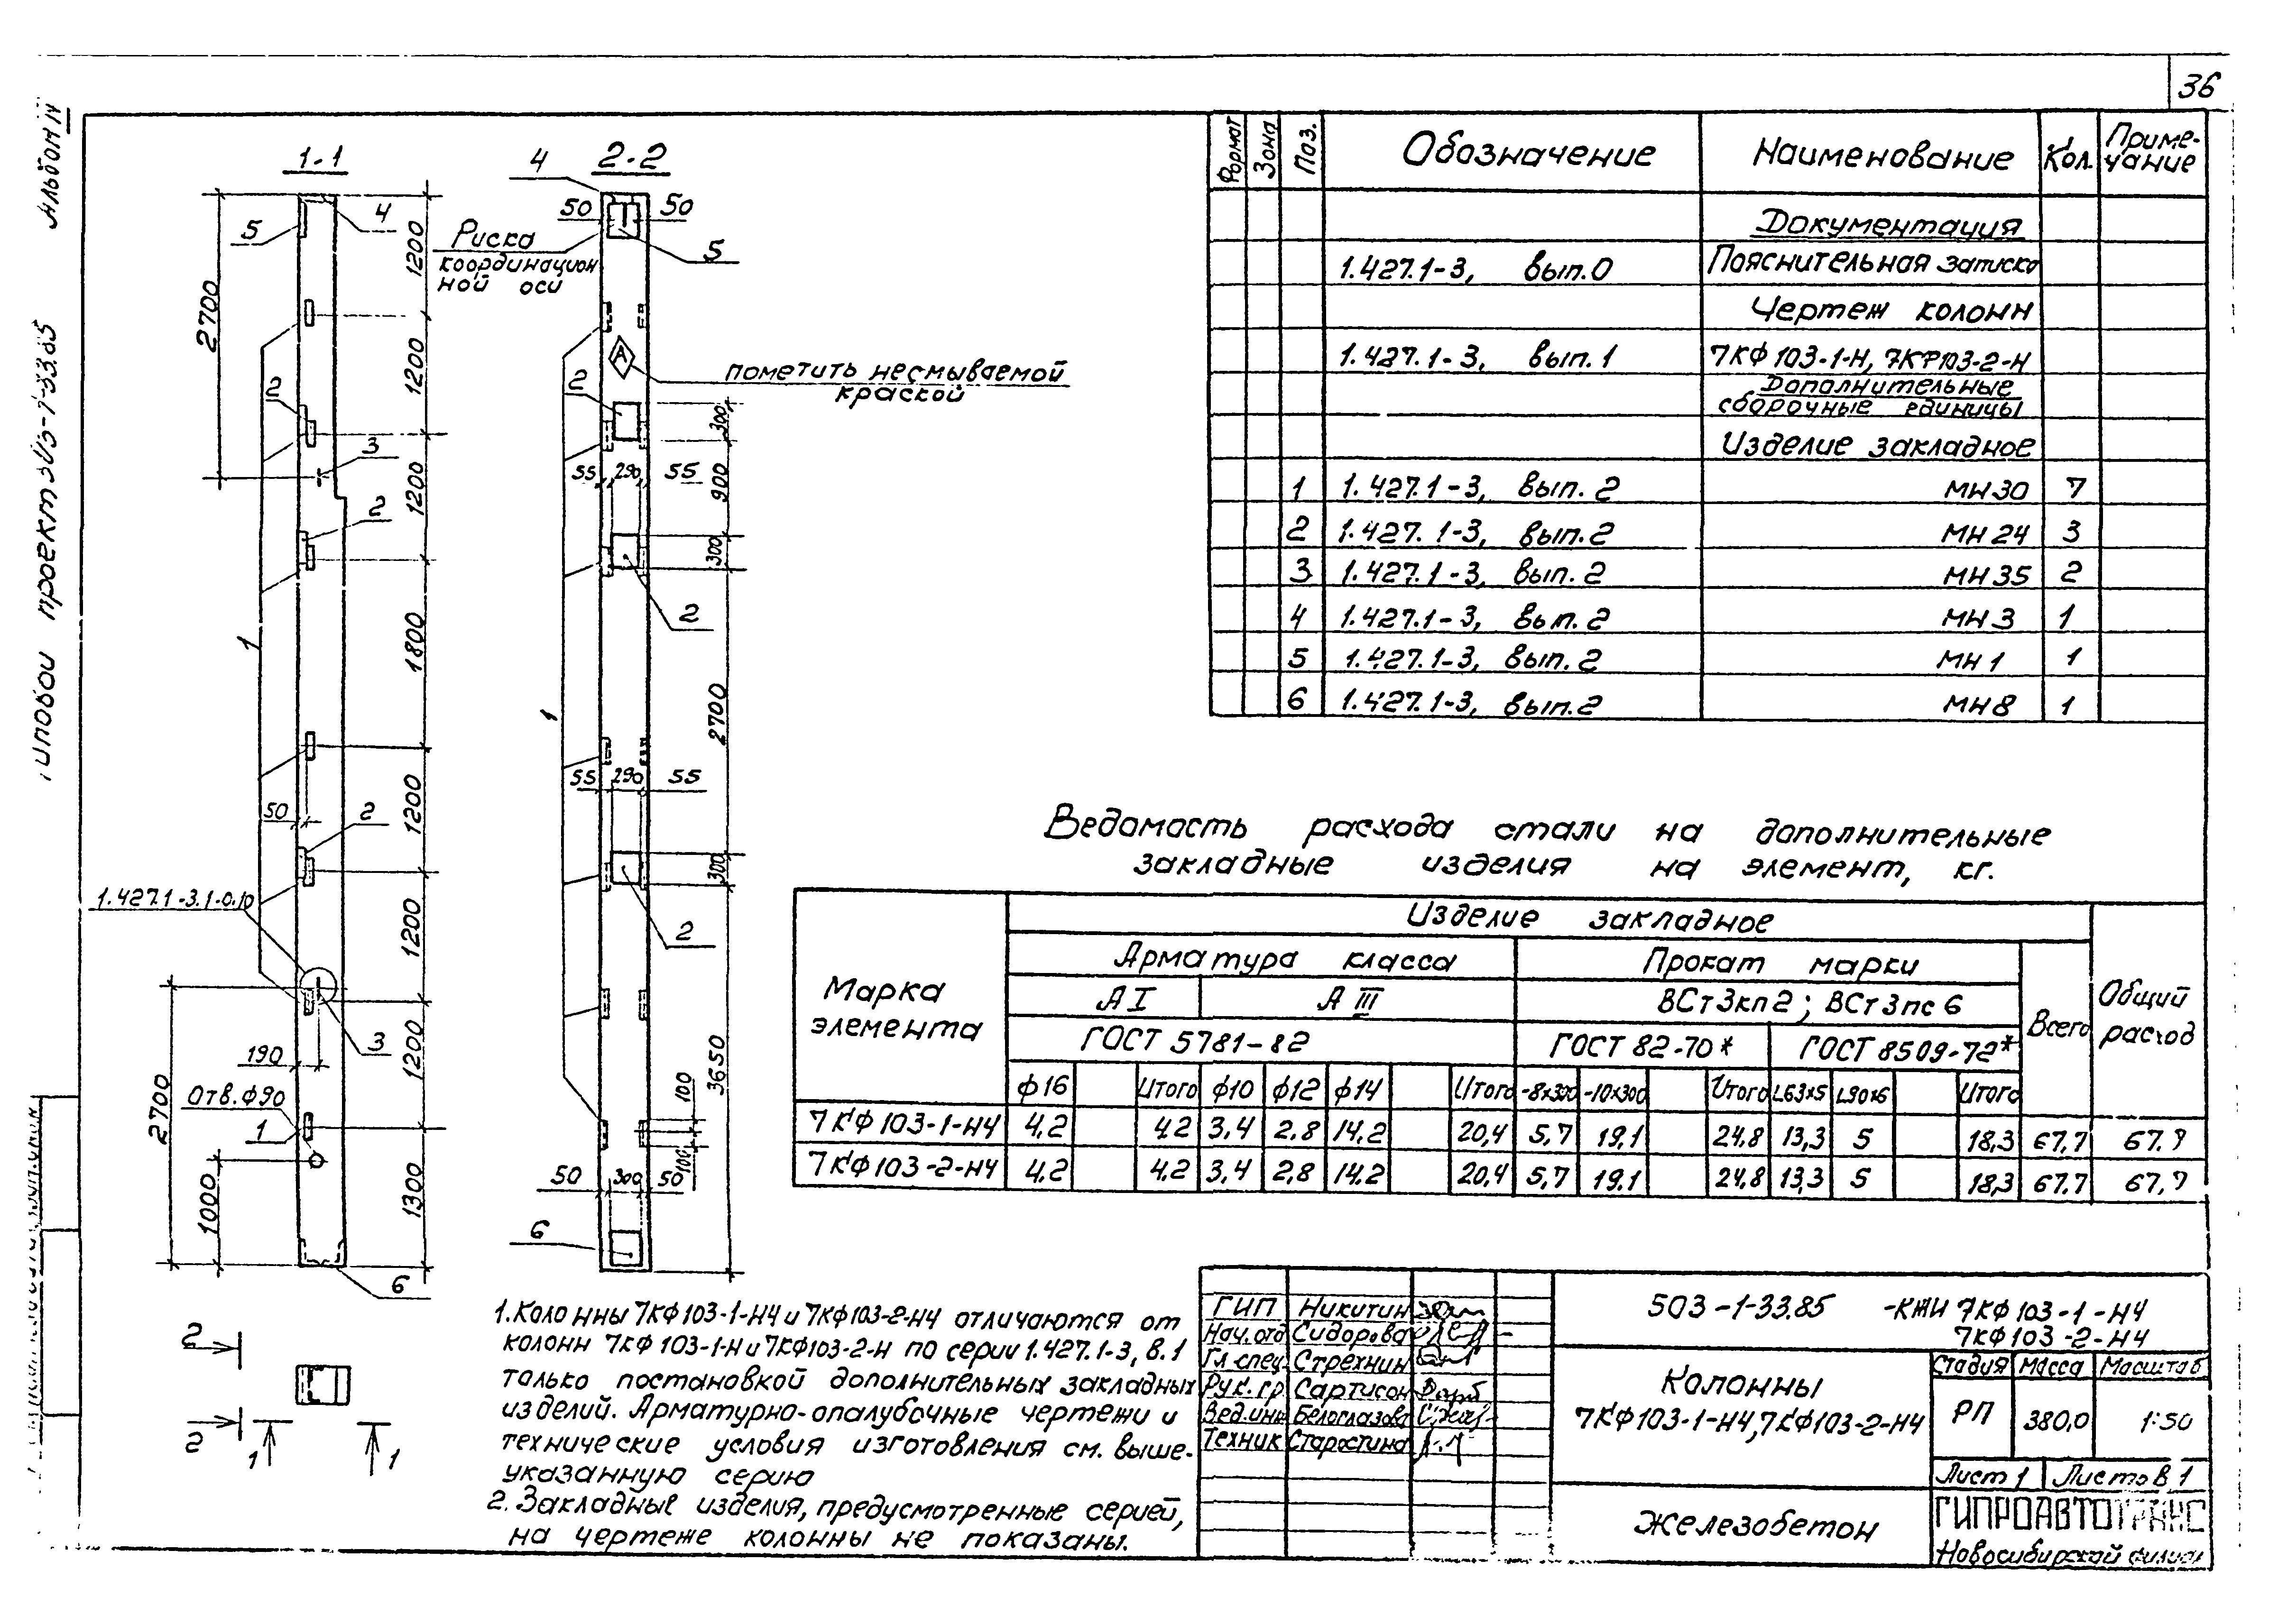 36
Альбом IV
проект 503-1-33.85
1-1
2-2
4
5
4
50
50
5
Риска
координацион
ной оси
1200
2700
1200
2
3
1200
2
1800
1
1200
50
2
1.427.1-3.1-0.10
1200
190
3
1200
2700
Отв.ф90
1
1000
1300
6
2
2
1
1
А
пометить несмываемой
краской
2
300
55
290
55
900
300
2
1
2700
55
290
55
300
2
3650
100
100
50
300
50
6
Формат
Зона
Поз.
Обозначение
Наименование
Кол.
Приме-
чание
Документация
1.427.1-3, вып.0 Пояснительная записка
Чертеж колонн
1.427.1-3, вып.1 7КФ103-1-Н, 7КФ103-2-Н
Дополнительные
сборочные единицы
Изделие закладное
1 1.427.1-3, вып.2 МН30 7
2 1.427.1-3, вып.2 МН24 3
3 1.427.1-3, вып.2 МН35 2
4 1.427.1-3, вып.2 МН3 1
5 1.427.1-3, вып.2 МН1 1
6 1.427.1-3, вып.2 МН8 1
Ведомасть расхода стали на дополнительные
закладные изделия на элемент, кг.
Марка
элемента
Изделие закладное
Арматура класса
Прокат марки
А I
А III
ВСт3кп2; ВСт3пс6
Всего
Общий
расход
ГОСТ 5781-82
ГОСТ 82-70*
ГОСТ 8509-72*
ф16 Итого ф10 ф12 ф14 Итого -8х300 -10х300 Итого L63х5 L90х6 Итого
7КФ103-1-Н4 4,2 4,2 3,4 2,8 14,2 20,4 5,7 19,1 24,8 13,3 5 18,3 67,7 67,7
7КФ103-2-Н4 4,2 4,2 3,4 2,8 14,2 20,4 5,7 19.1 24,8 13,3 5 18,3 67.7 67,7
1. Колонны 7КФ103-1-Н4 и 7КФ103-2-Н4 отличаются от
колонн 7КФ103-1-Н и 7КФ103-2-Н по серии 1.427.1-3, в.1
только постановкой дополнительных закладных
изделий. Арматурно-опалубочные чертежи и
технические условия изготовления см. выше-
указанную серию
2. Закладные изделия, предусмотренные серией,
на чертеже колонны не показаны.
ГИП Никитин
Нач.отд Сидорова
Гл.спец. Стрехнин
Рук.гр. Сартисон
Вед.инж Белоглазова
Техник Старостина
503-1-33.85 -КЖИ 7КФ103-1-Н4
7КФ103-2-Н4
Колонны
7КФ103-1-Н4, 7КФ103-2-Н4
Стадия Масса Масштаб
РП 380,0 1:50
Лист 1 Листов 1
Железобетон
ГИПРОАВТОТРАНС
Новосибирский филиал